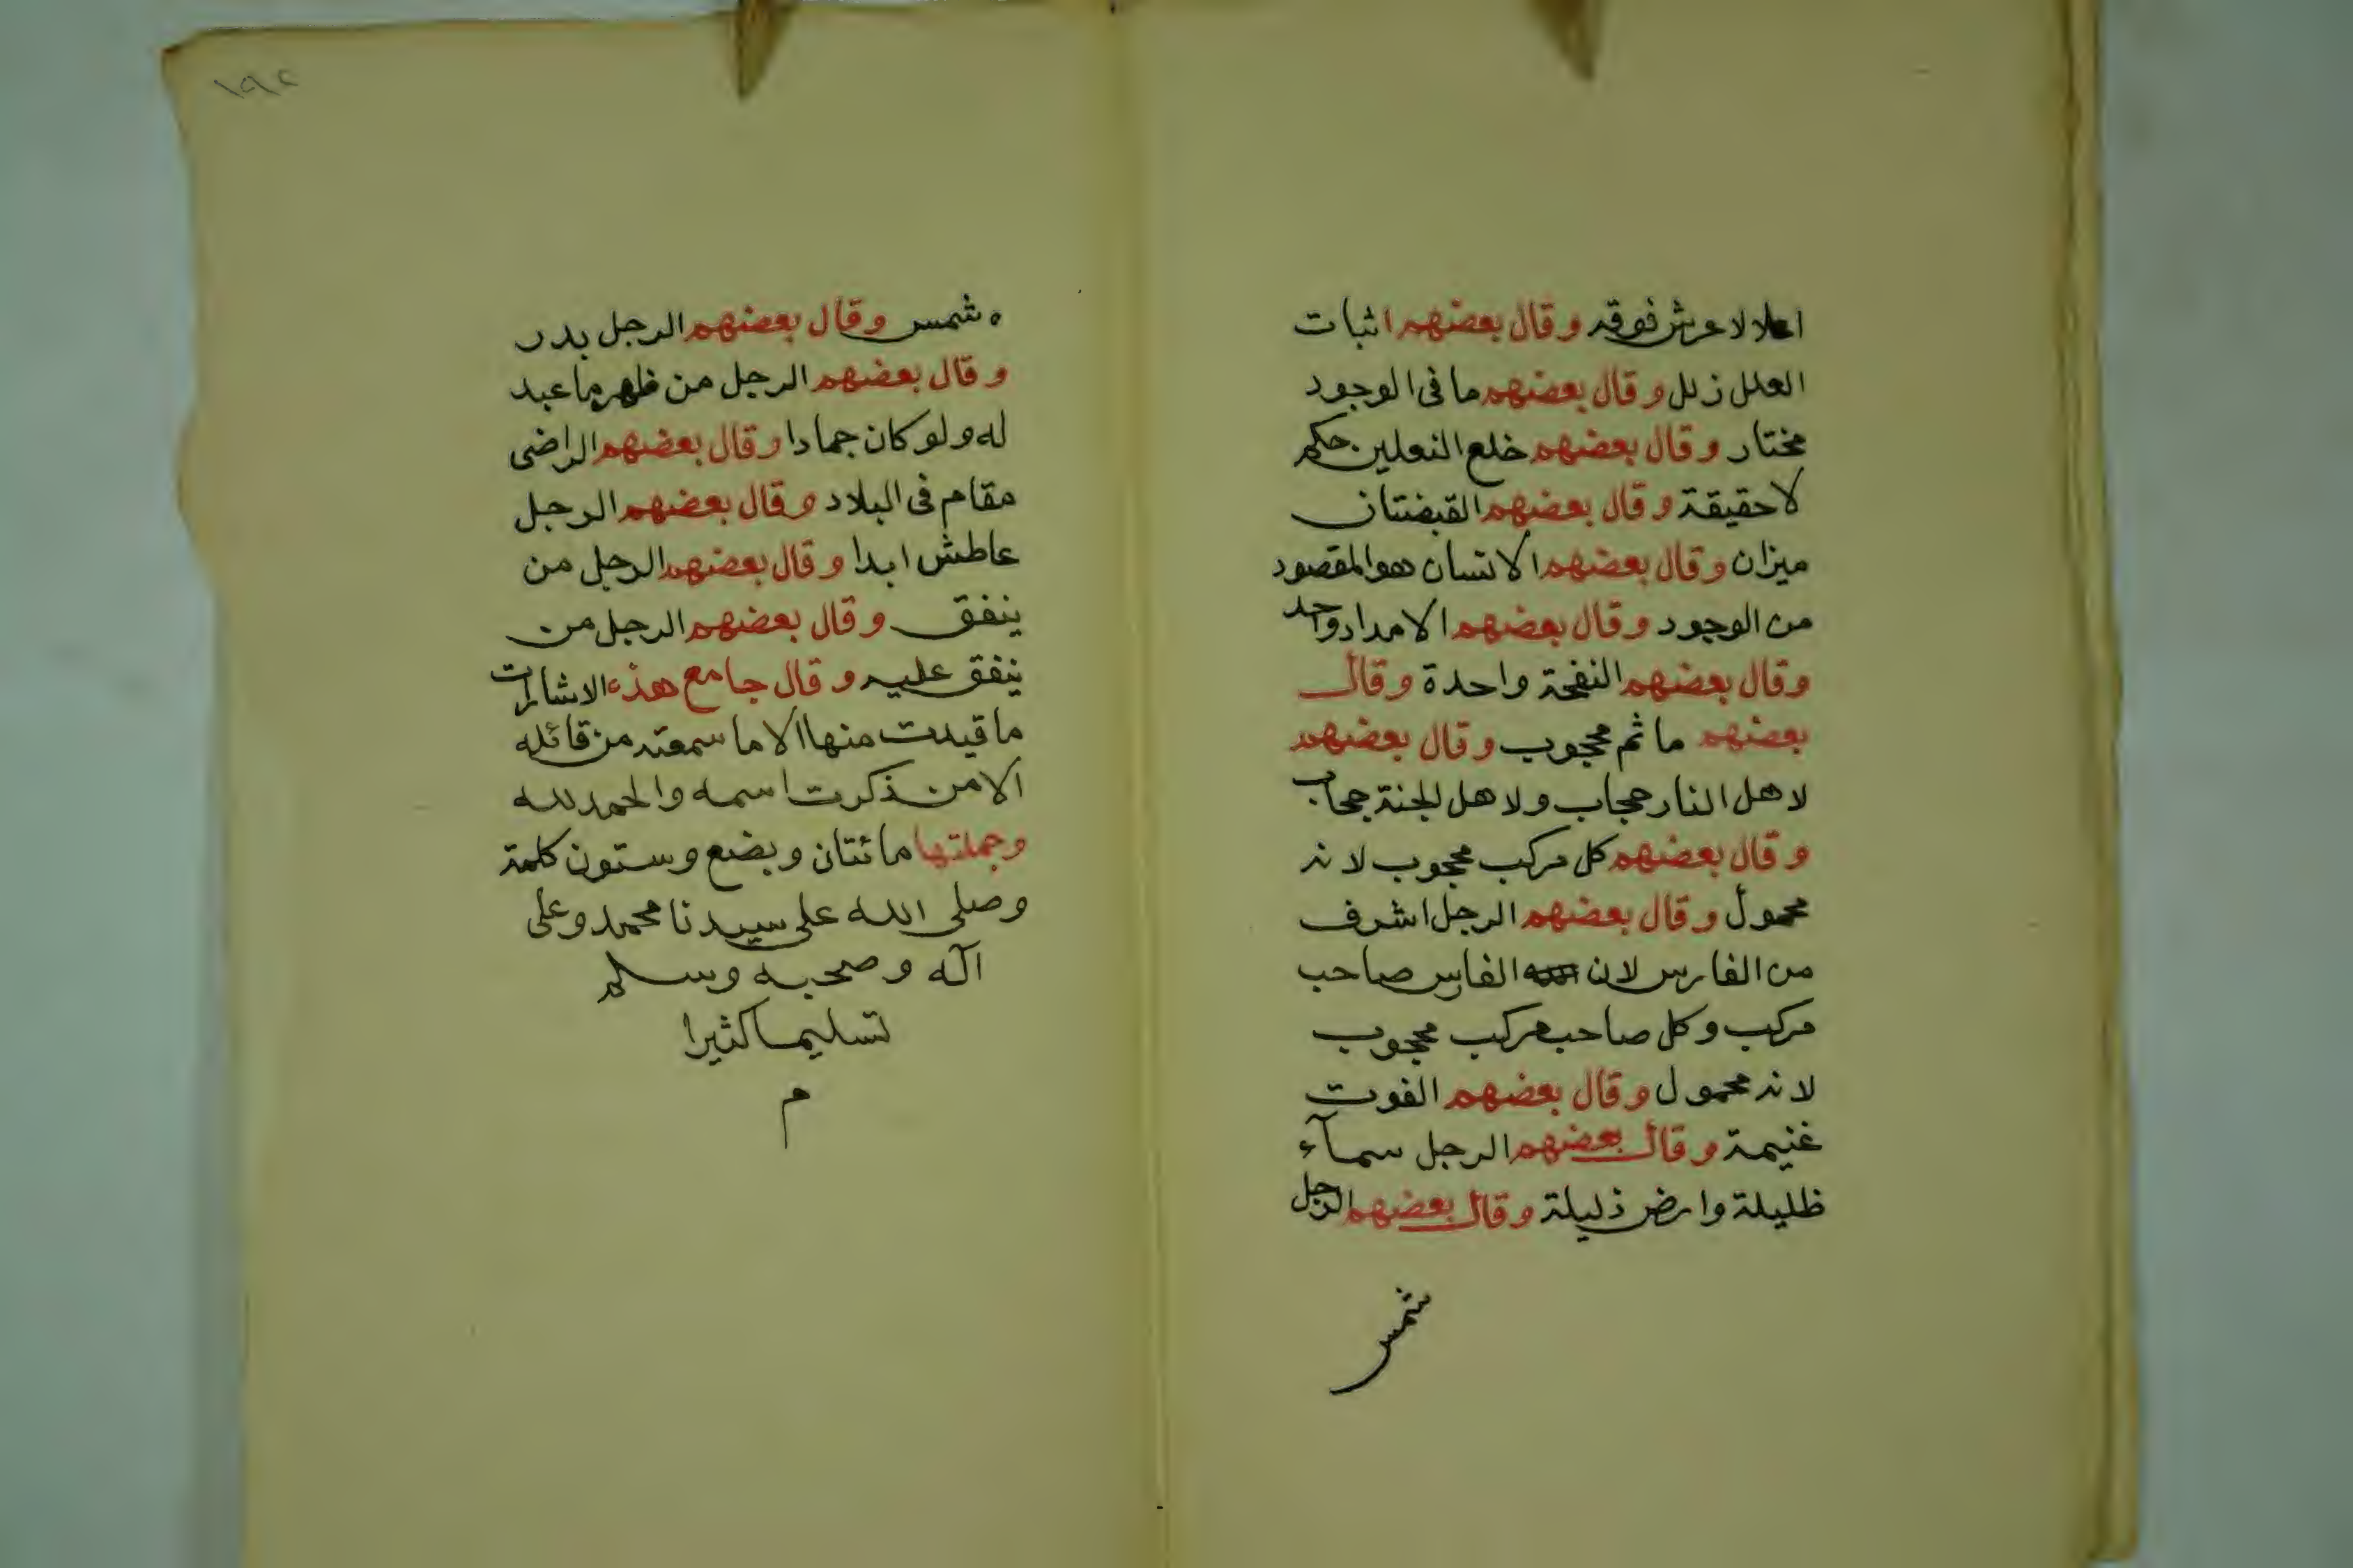 اعلا لا عرش فوقه وقال بعضهم اثبات
العلل زلل وقال بعضهم ما فى الوجود
مختار وقال بعضهم خلع النعلين حكم
لا حقيقة وقال بعضهم القبضتان
ميزان وقال بعضهم الانسان هو المقصود
من الوجود وقال بعضهم الامداد واحد
وقال بعضهم النفخة واحدة وقال
بعضهم ما ثم محجوب وقال بعضهم
لاهل النار حجاب ولاهل الجنة حجاب
وقال بعضهم كل مركب محجوب لانه
محمول وقال بعضهم الرجل اشرف
من الفارس لان الفارس صاحب
مركب وكل صاحب مركب محجوب
لانه محمول وقال بعضهم الفوت
غنيمة وقال بعضهم الرجل سمآء
ظليلة وارض ذليلة وقال بعضهم الرجل
شمس
١٩٢
شمس وقال بعضهم الرجل بدر
وقال بعضهم الرجل من ظهر ما عبد
له ولو كان جمادا وقال بعضهم الراضى
مقام فى البلاد وقال بعضهم الرجل
عاطش ابدا وقال بعضهم الرجل من
ينفق وقال بعضهم الرجل من
ينفق عليه وقال جامع هذه الاشارات
ما قيدت منها الا ما سمعته من قائله
الا من ذكرت اسمه والحمد لله
وجملتها مائتان وبضع وستون كلمة
وصلى الله على سيدنا محمد وعلى
آله وصحبه وسلم
تسليما كثيرا
م